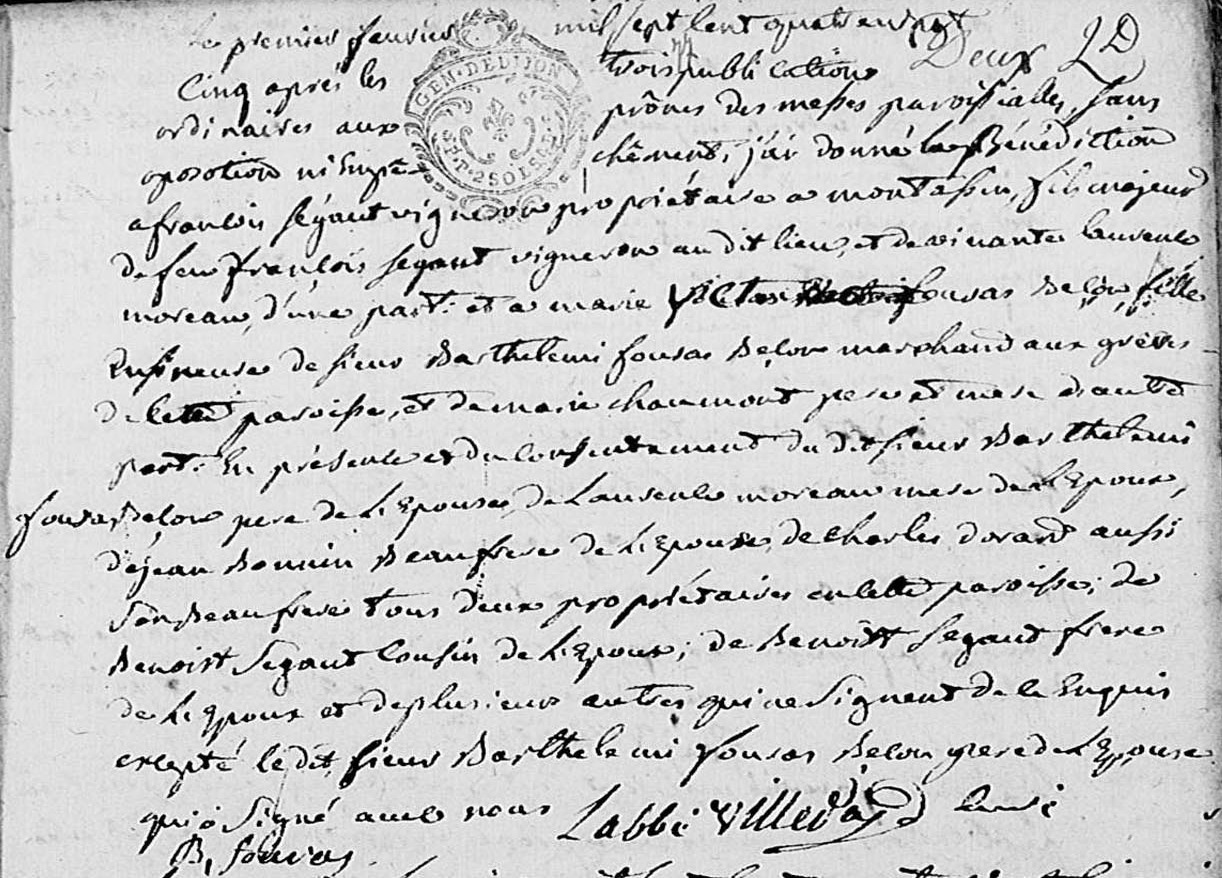 le premier fevrier mil sept cent quatrevingt
Deux 2D
Cinq aprés les trois publications
ordinaires aux prônes des messes paroissialles, sans
oposition ni Empê chêment, j'ai donné la Bénédiction
GEN. DE DIJON
P. P. 2 SOLS
a francois segaut vigneron propriétaire a fils majeur
de feu francois segaut vigneron au dit lieu, et de vivante laurence
moreau, d'une part: et a marie fousas Belon fille
de sieur Barthelemi fousas Belon marchand aux grêves
de cette paroisse, et de marie chaumont pere et mere d'autre
part. En présence et du consentement du dit sieur Barthelemi
fousas Belon pere de l'Epouse, de Laurence moreau mere de l'Epoux,
de jean Bonnin Beaufrere de l'Epouse, de charles dorard aussi
son Beaufrere tous deux propriétaires en cette paroisse; de
Benoist Segaut Cousin de l'Epoux; de Benoist Segaut frere
de l'Epoux et de plusieurs autres qui ne signent de ce Enquis
excepté le dit sieur Barthelemi fousas Belon pere de l'Epouse
qui a Signé avec nous Labbé curé
B, fousas